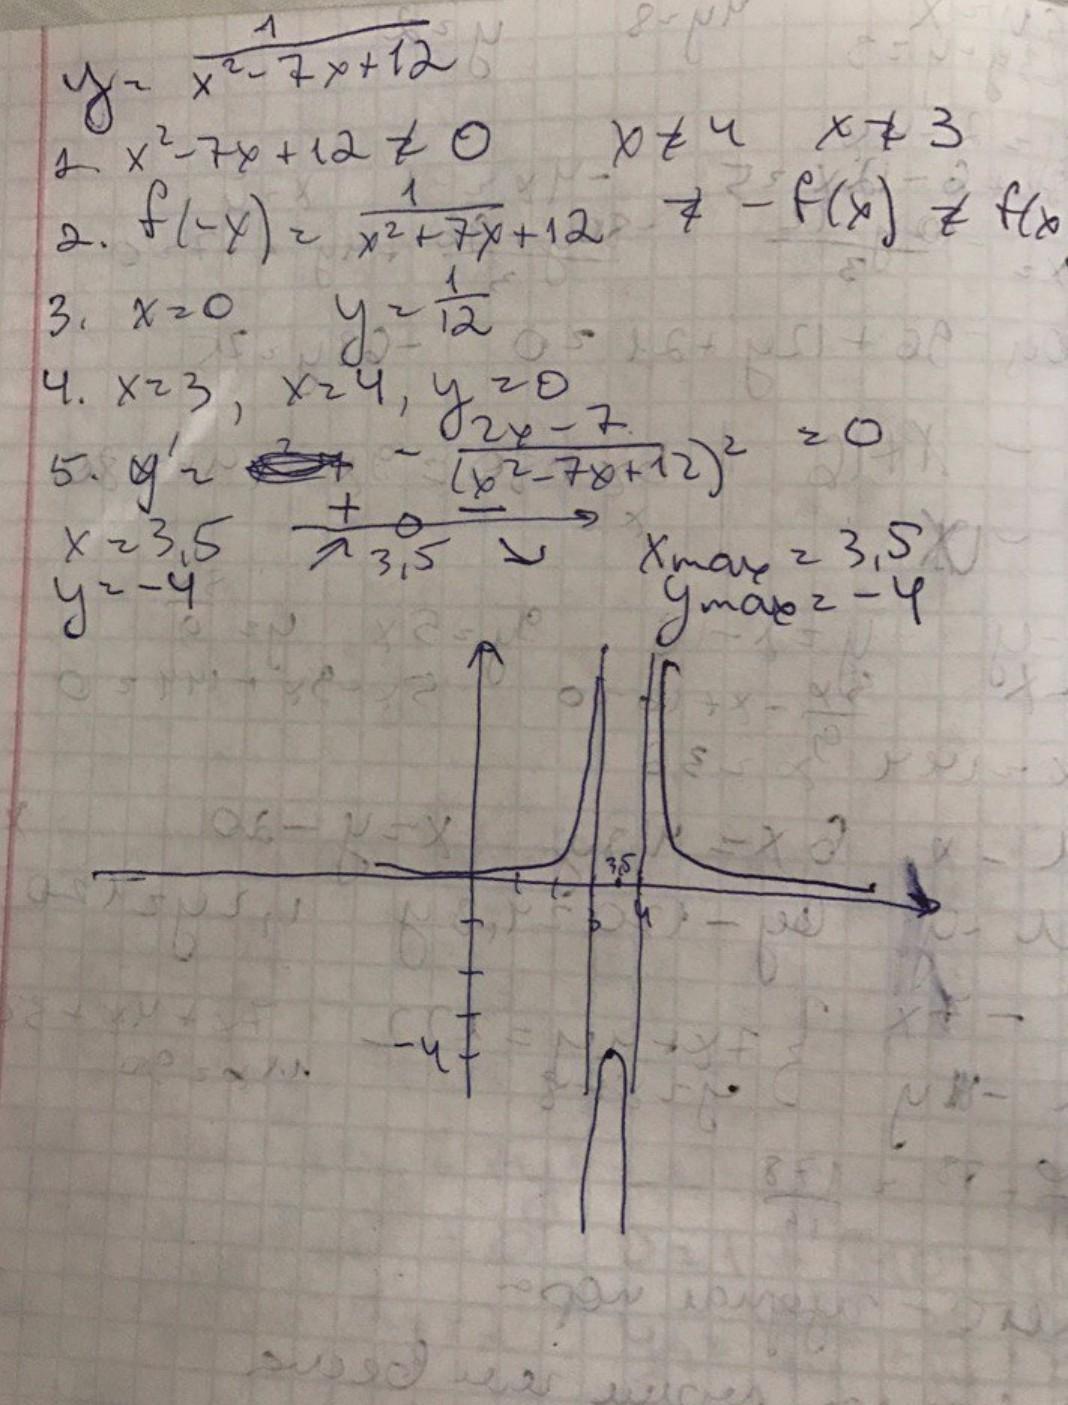 y = 1/(x² - 7x + 12)
1. x² - 7x + 12 ≠ 0 x ≠ 4 x ≠ 3
2. f(-x) = 1/(x² + 7x + 12) ≠ -f(x) ≠ f(x
3. x = 0 y = 1/12
4. x = 3, x = 4, y = 0
5. y' = - (2x - 7)/(x² - 7x + 12)² = 0
+ -
x = 3,5 3,5 xmax = 3,5
y = -4 ymax = -4
3,5
3 4
-4